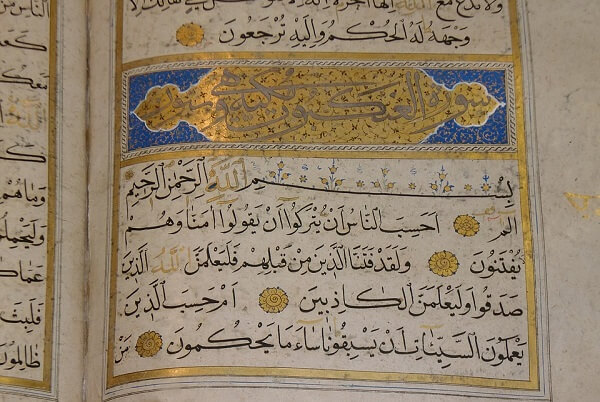 ولا تدع مع الله الها اخر
وجهه له الحكم واليه ترجعون
سورة العنكبوت مكية وهي
بسم الله الرحمن الرحيم
الم احسب الناس ان يتركوا ان يقولوا امنا وهم
يفتنون ولقد فتنا الذين من قبلهم فليعلمن الله الذين
صدقوا وليعلمن الكاذبين ام حسب الذين
يعملون السيئات ان يسبقونا ساء ما يحكمون من
الناس من
معكم
وماهم
فلبث
ظالمون